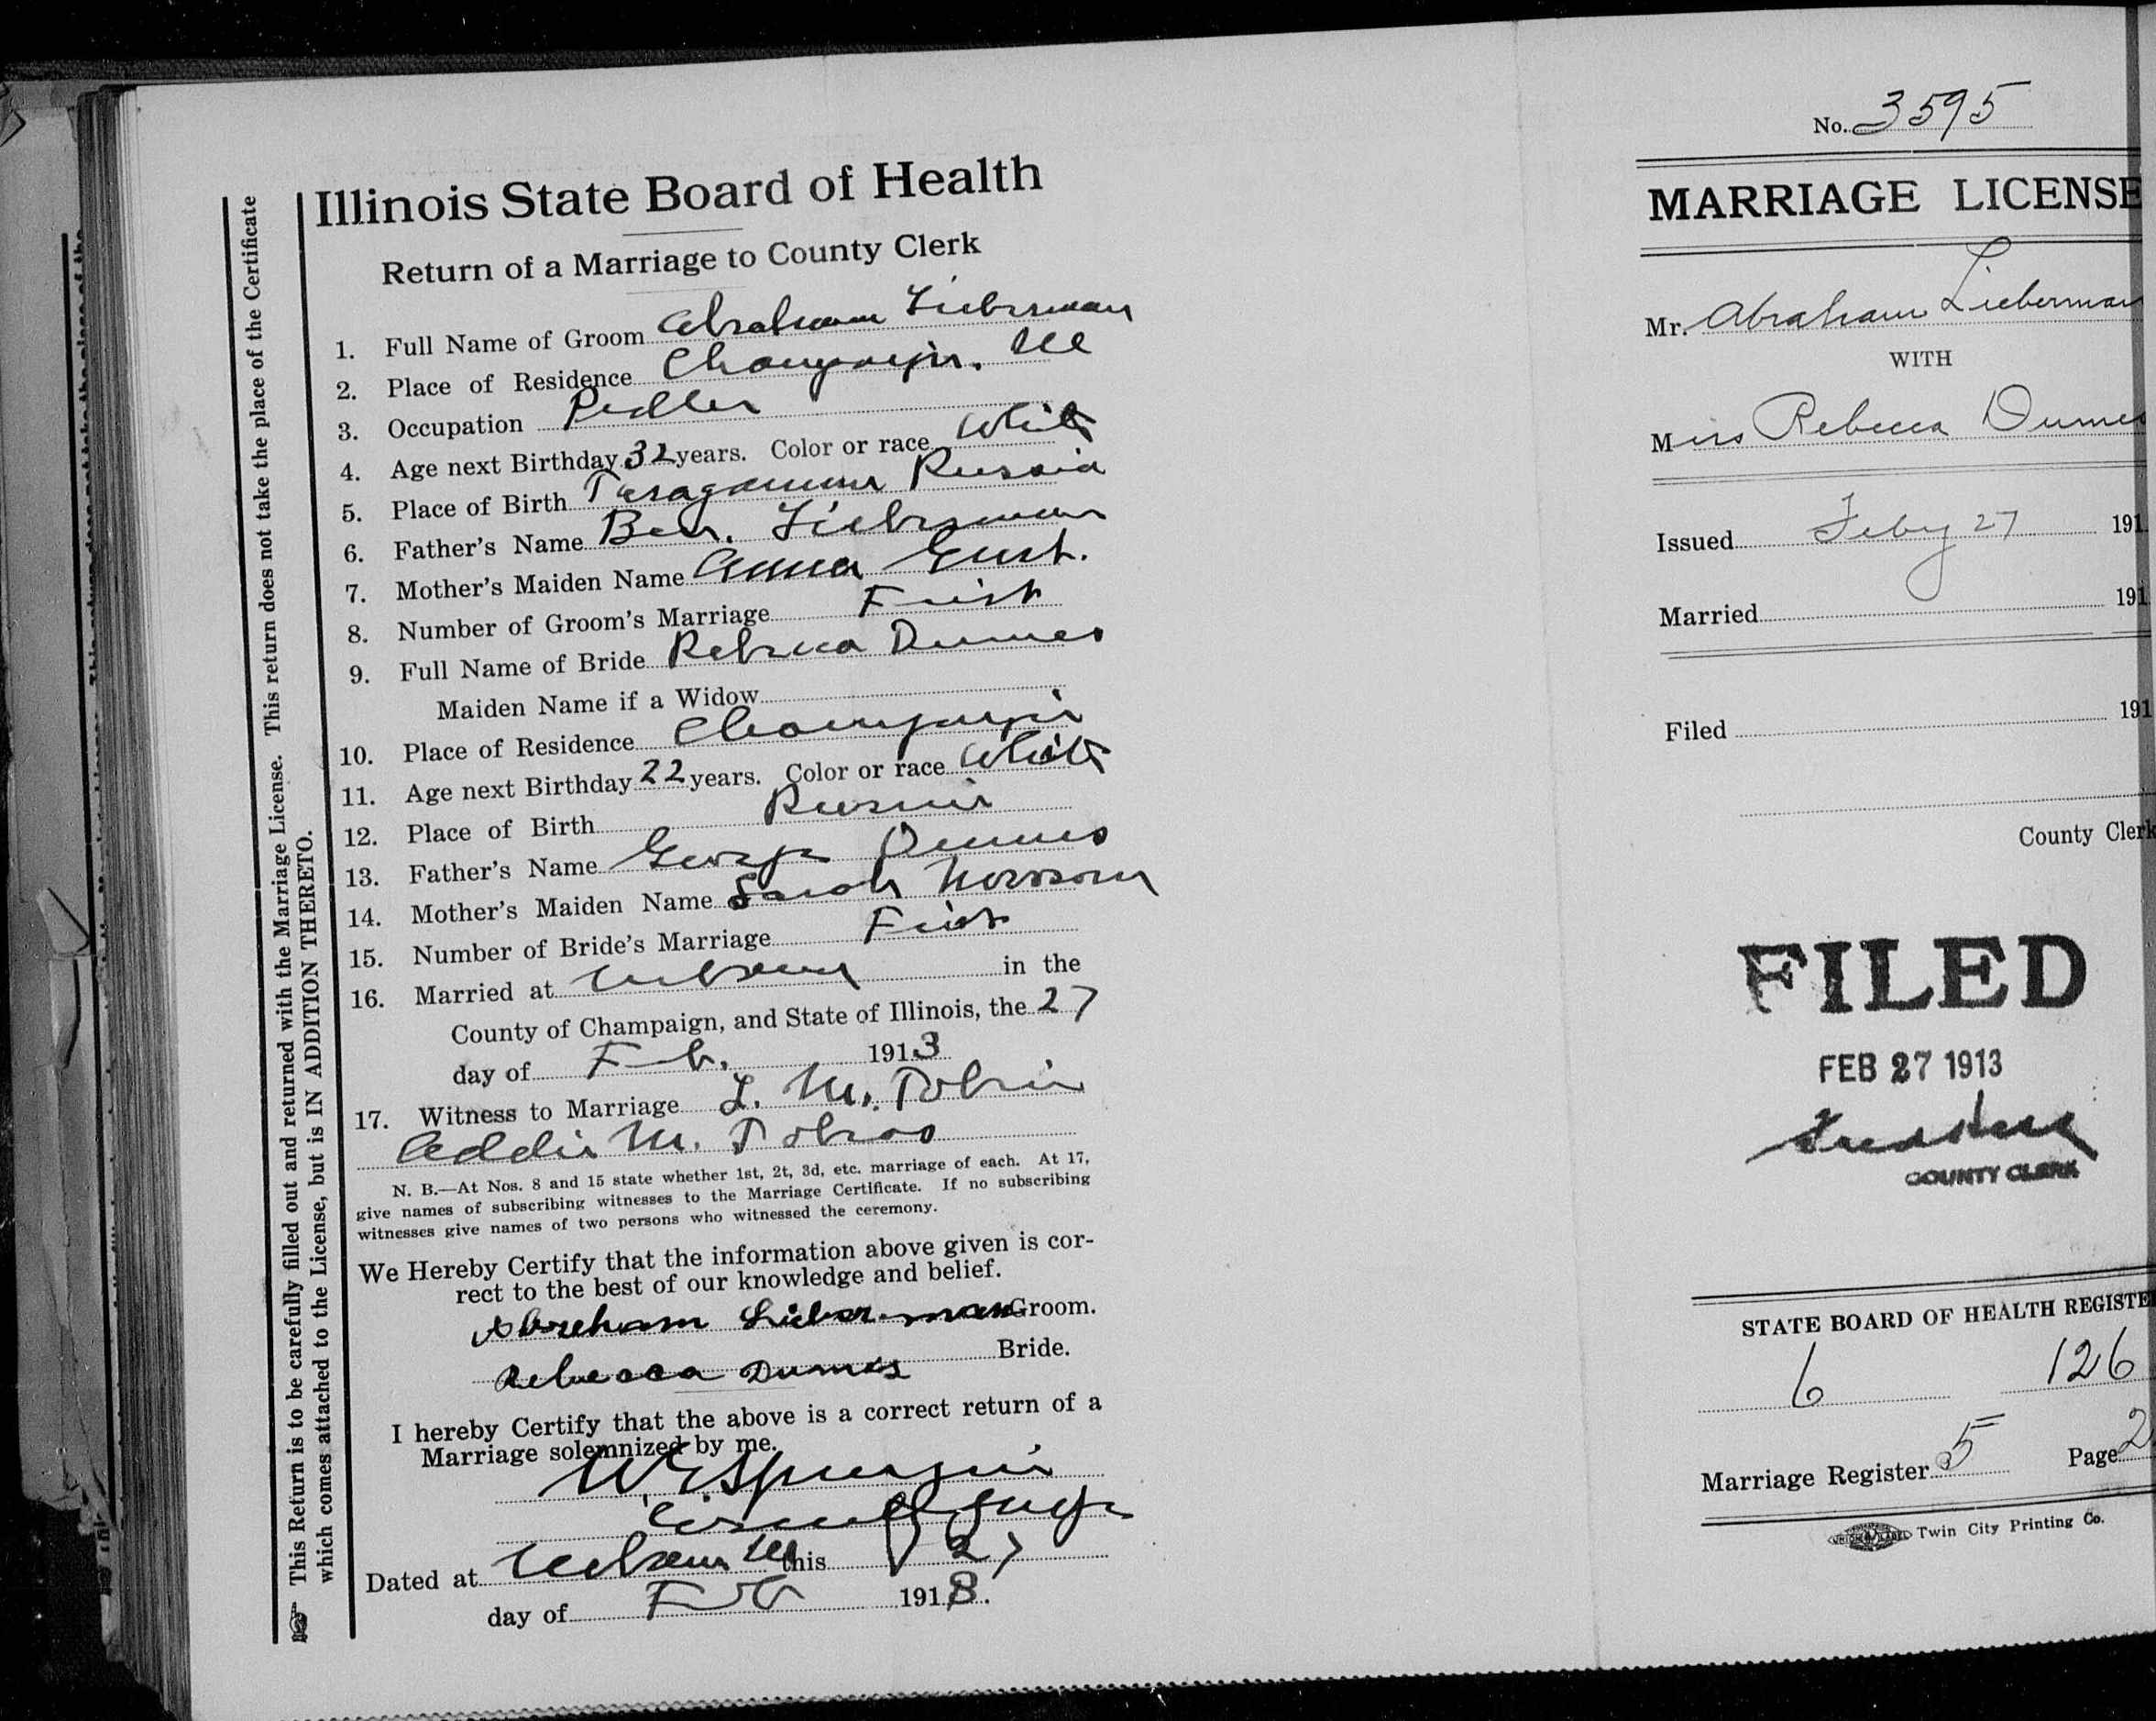 Illinois State Board of Health
Return of a Marriage to County Clerk
1. Full Name of Groom Abraham Lieberman
2. Place of Residence Champaign. Ill
3. Occupation Pedler
4. Age next Birthday 32 years. Color or race White
5. Place of Birth Russia
6. Father's Name Ben. Lieberman
7. Mother's Maiden Name Anna
8. Number of Groom's Marriage First
9. Full Name of Bride Rebecca Dumes
Maiden Name if a Widow
10. Place of Residence Champaign
11. Age next Birthday 22 years. Color or race White
12. Place of Birth Russia
13. Father's Name George Dumes
14. Mother's Maiden Name Sarah
15. Number of Bride's Marriage First
16. Married at Urbana in the
County of Champaign, and State of Illinois, the 27
day of Feb. 1913
17. Witness to Marriage L. M. Tobin
Addie M. Tobias
N. B.—At Nos. 8 and 15 state whether 1st, 2t, 3d, etc. marriage of each. At 17,
give names of subscribing witnesses to the Marriage Certificate. If no subscribing
witnesses give names of two persons who witnessed the ceremony.
We Hereby Certify that the information above given is cor-
rect to the best of our knowledge and belief.
Abreham Lieberman Groom.
Rebecca Dumes Bride.
I hereby Certify that the above is a correct return of a
Marriage solemnized by me.
W. G. Spurgin
County Judge
Dated at Urbana Ill this 27
day of Feb 1913.
This Return is to be carefully filled out and returned with the Marriage License. This return does not take the place of the Certificate
which comes attached to the License, but is IN ADDITION THERETO.
No. 3595
MARRIAGE LICENSE
Mr. Abraham Lieberman
WITH
Miss Rebecca Dumes
Issued Feby 27 191
Married 191
Filed 191
County Clerk
FILED
FEB 27 1913
COUNTY CLERK
STATE BOARD OF HEALTH REGISTE
6 126
Marriage Register 5 Page 2
Twin City Printing Co.